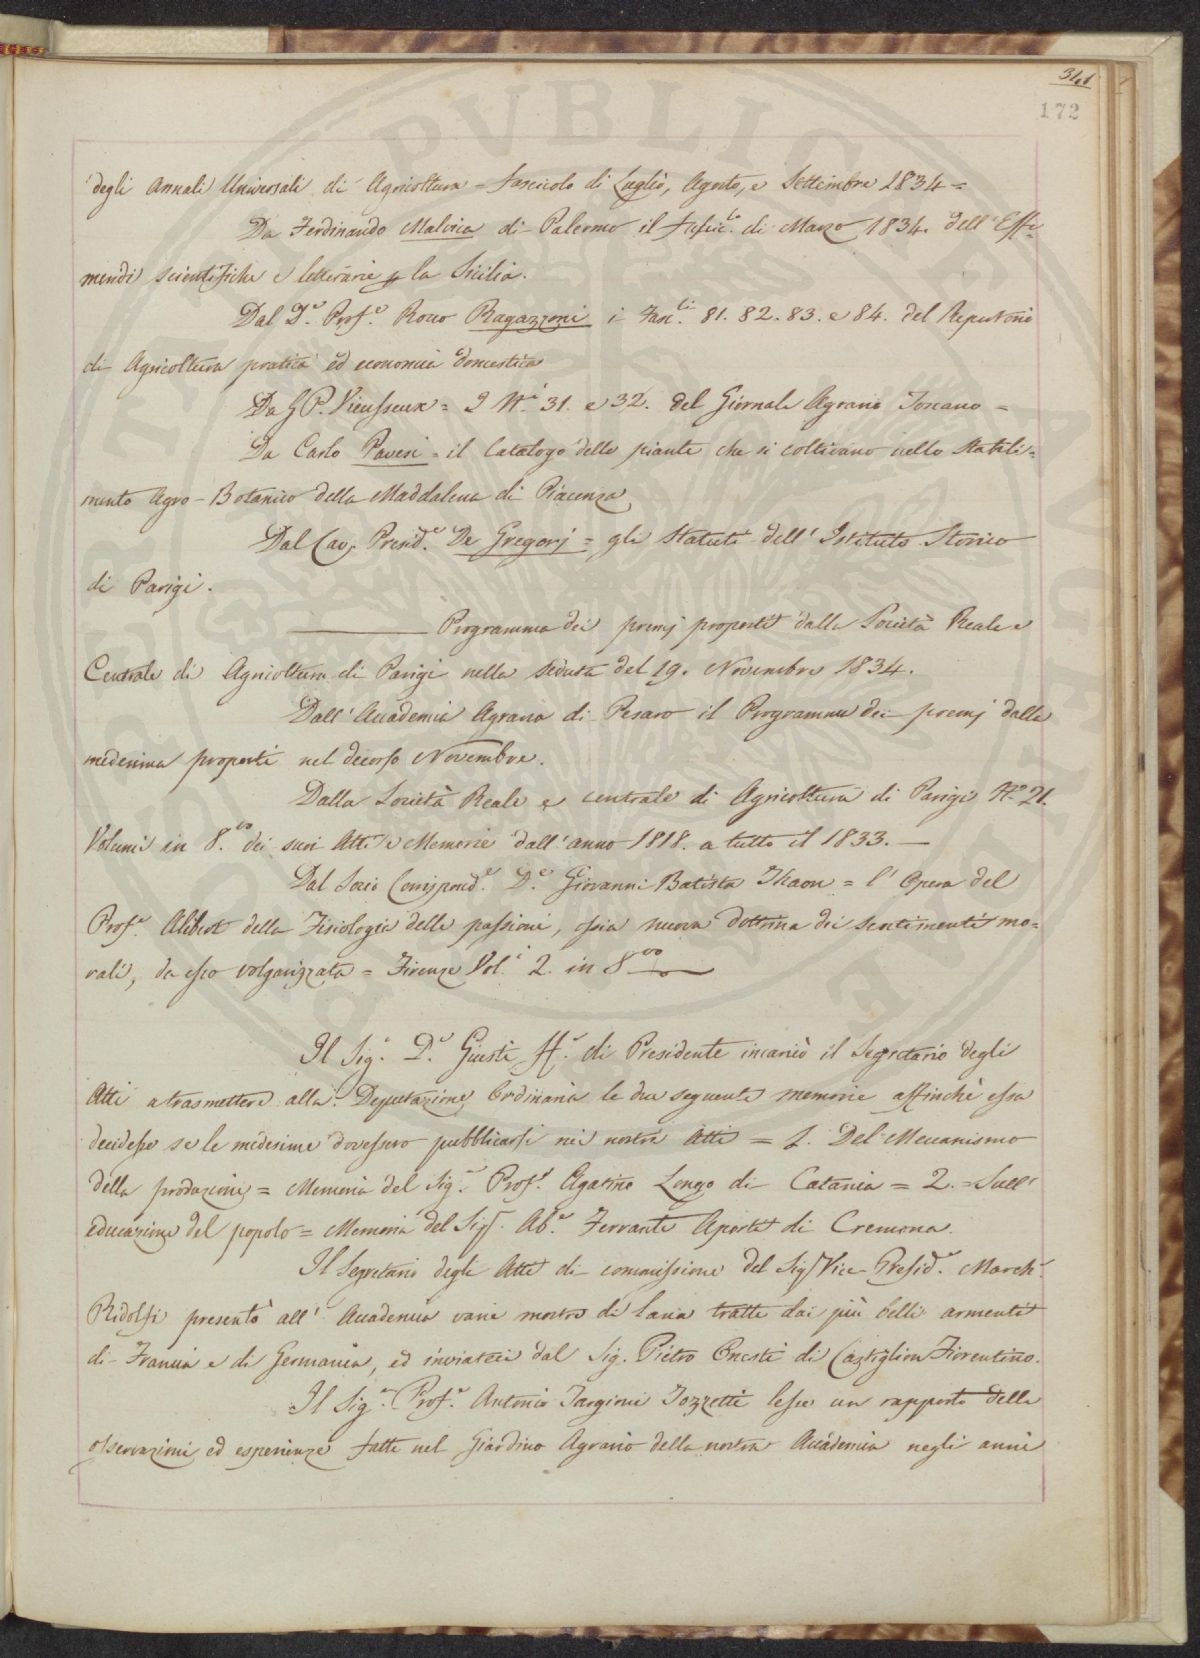 341
172
degli Annali Universali di Agricoltura = Fascicolo di Luglio, Agosto, e Settembre 1834 =
Da Ferdinando Malvica di Palermo il fascic.lo di Marzo 1834. dell'Effe-
meridi scientifiche e letterarie p la Sicilia.
Dal D.e Prof.e Rocco Ragazzoni i Fasc.li 81. 82. 83. e 84. del Repertorio
di Agricoltura pratica ed economia domestica
Da G P. Vieusseux = I N.i 31. e 32. del Giornale Agrario Toscano =
Da Carlo Pavesi = il Catalogo delle piante che si coltivano nello Stabili-
mento Agro-Botanico della Maddalena di Piacenza
Dal Cav. Presid.e De Gregorj = gli Statuti dell'Istituto Storico
di Parigi.
——— Programma dei premj proposti dalla Società Reale e
Centrale di Agricoltura di Parigi nella seduta del 19. Novembre 1834.
Dall'Accademia Agraria di Pesaro il Programma dei premj dalla
medesima proposti nel decorso Novembre.
Dalla Società Reale e centrale di Agricoltura di Parigi N.o 21.
Volumi in 8.vo dei suoi Atti e Memorie dall'anno 1818. a tutto il 1833. —
Dal Socio Corrispond.e D.e Giovanni Batista Thaon = l'Opera del
Prof.e Alibert della Fisiologia delle passioni, ossia nuova dottrina dei sentimenti mo-
rali, da esso volgarizzata = Firenze Vol.i 2. in 8vo —
Il Sig.e D.e Giusti ff.e di Presidente incaricò il Segretario degli
Atti a trasmettere alla Deputazione Ordinaria le due seguenti memorie affinchè essa
decidesse se le medesime dovessero pubblicarsi nei nostri Atti = 1. Del Meccanismo
della produzione = Memoria del Sig.e Prof.e Agatino Longo di Catania = 2. = Sull'
educazione del popolo = Memoria del Sig.e Ab.e Ferrante Aporti di Cremona.
Il Segretario degli Atti di commissione del Sig.e Vice-Presid.e March.e
Ridolfi presentò all'Accademia varie mostre di lana tratte dai più belli armenti
di Francia e di Germania, ed inviateci dal Sig. Pietro Onesti di Castiglion Fiorentino.
Il Sig.e Prof.e Antonio Targioni Tozzetti lesse un rapporto delle
osservazioni ed esperienze fatte nel Giardino Agrario della nostra Accademia negli anni